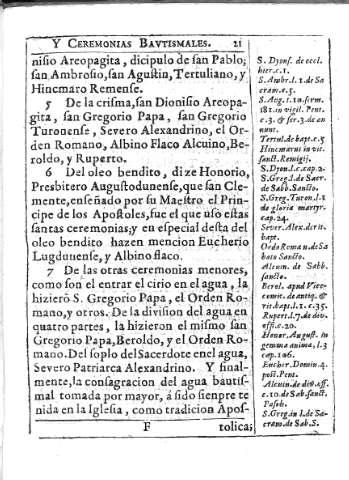 Y CEREMONIAS BAVTISMALES. 21
nisio Areopagita, dicipulo de san Pablo;
san Ambrosio, san Agustin, Tertuliano, y
Hincmaro Remense.
5 De la crisma, san Dionisio Areopa-
gita, san Gregorio Papa, san Gregorio
Turonense, Severo Alexandrino, el Or-
den Romano, Albino Flaco Alcuino, Be-
roldo, y Ruperto.
6 Del oleo bendito, dize Honorio,
Presbitero Augustodunense, que san Cle-
mente, enseñado por su Maestro el Prin-
cipe de los Apostoles, fue el que usó estas
santas ceremonias; y en especial desta del
oleo bendito hazen mencion Eucherio
Lugdunense, y Albino flaco.
7 De las otras ceremonias menores,
como son el entrar el cirio en el agua, la
hizierō S. Gregorio Papa, el Orden Ro-
mano, y otros. De la division del agua en
quatro partes, la hizieron el mismo san
Gregorio Papa, Beroldo, y el Orden Ro-
mano. Del soplo del Sacerdote en el agua,
Severo Patriarca Alexandrino. Y final-
mente, la consagracion del agua bautis-
mal tomada por mayor, á sido sienpre te
nida en la Iglesia, como tradicion Apos-
F tolica;
S. Dyons. de eccl.
hier. c. 1.
S. Ambr. l. 2. de Sa
cram. c. 5.
S. Aug. t. 10. serm.
181. in vigil. Pent.
c. 3. & ser. 3. de an
nunt.
Tertul. de bapt. c. 5
Hincmarus in vit.
sanct. Remigij.
S. Dyon. l. c. cap. 2.
S. Greg. l. de Sacr.
de Sabb. Sancto.
S. Greg. Turon. l. 1
de gloria martyr.
cap. 24.
Sever. Alex. de rit.
bapt.
Ordo Roman. de Sa
bato Sancto.
Alcuin. de Sabb.
sancto.
Berol. apud Vice-
comit. de antiq. &
rit. bap. l. 1. c. 35.
Rupert. l. 7. de div.
offi. c. 20.
Honor. August. in
gemma anima, l. 3
cap. 106.
Eucher. Domin. 4.
post. Pent.
Alcuin. de div. off.
c. 10. de Sab. sanct.
Pasch.
S. Greg. in l. de Sa-
cram. de Sab. S.